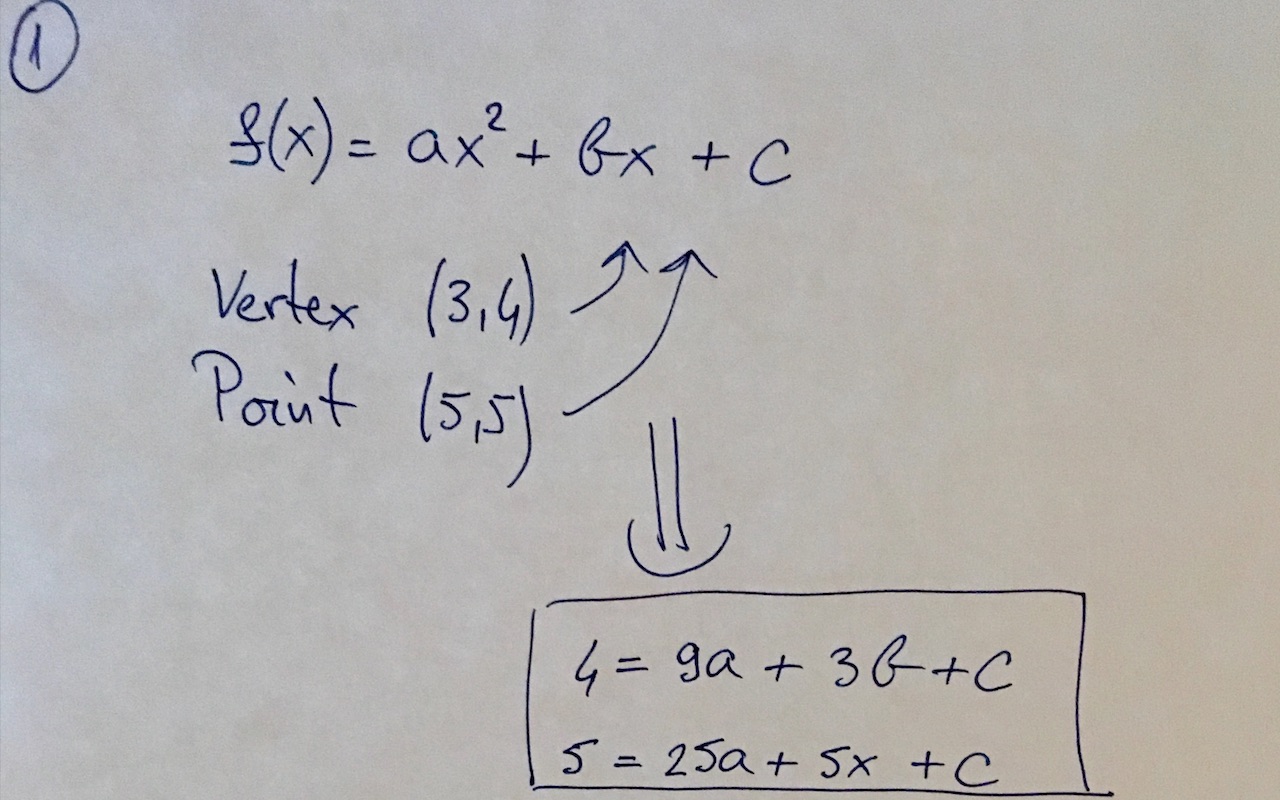 1
f(x) = ax² + bx + c
Vertex (3,4)
Point (5,5)
4 = 9a + 3b + c
5 = 25a + 5x + c